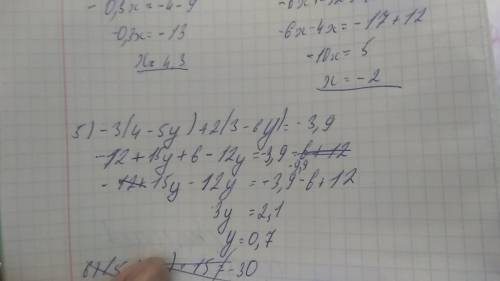 - 0,3x = -4 - 9
-0,3x = -13
x = 4,3
-6x - 4x = -17 + 12
-10x = 5
x = -2
5) -3(4 - 5y) + 2(3 - 6y) = -3,9
-12 + 15y + 6 - 12y = -3,9 - 6 + 12
15y - 12y = -3,9 - 6 + 12
3y = 2,1
y = 0,7